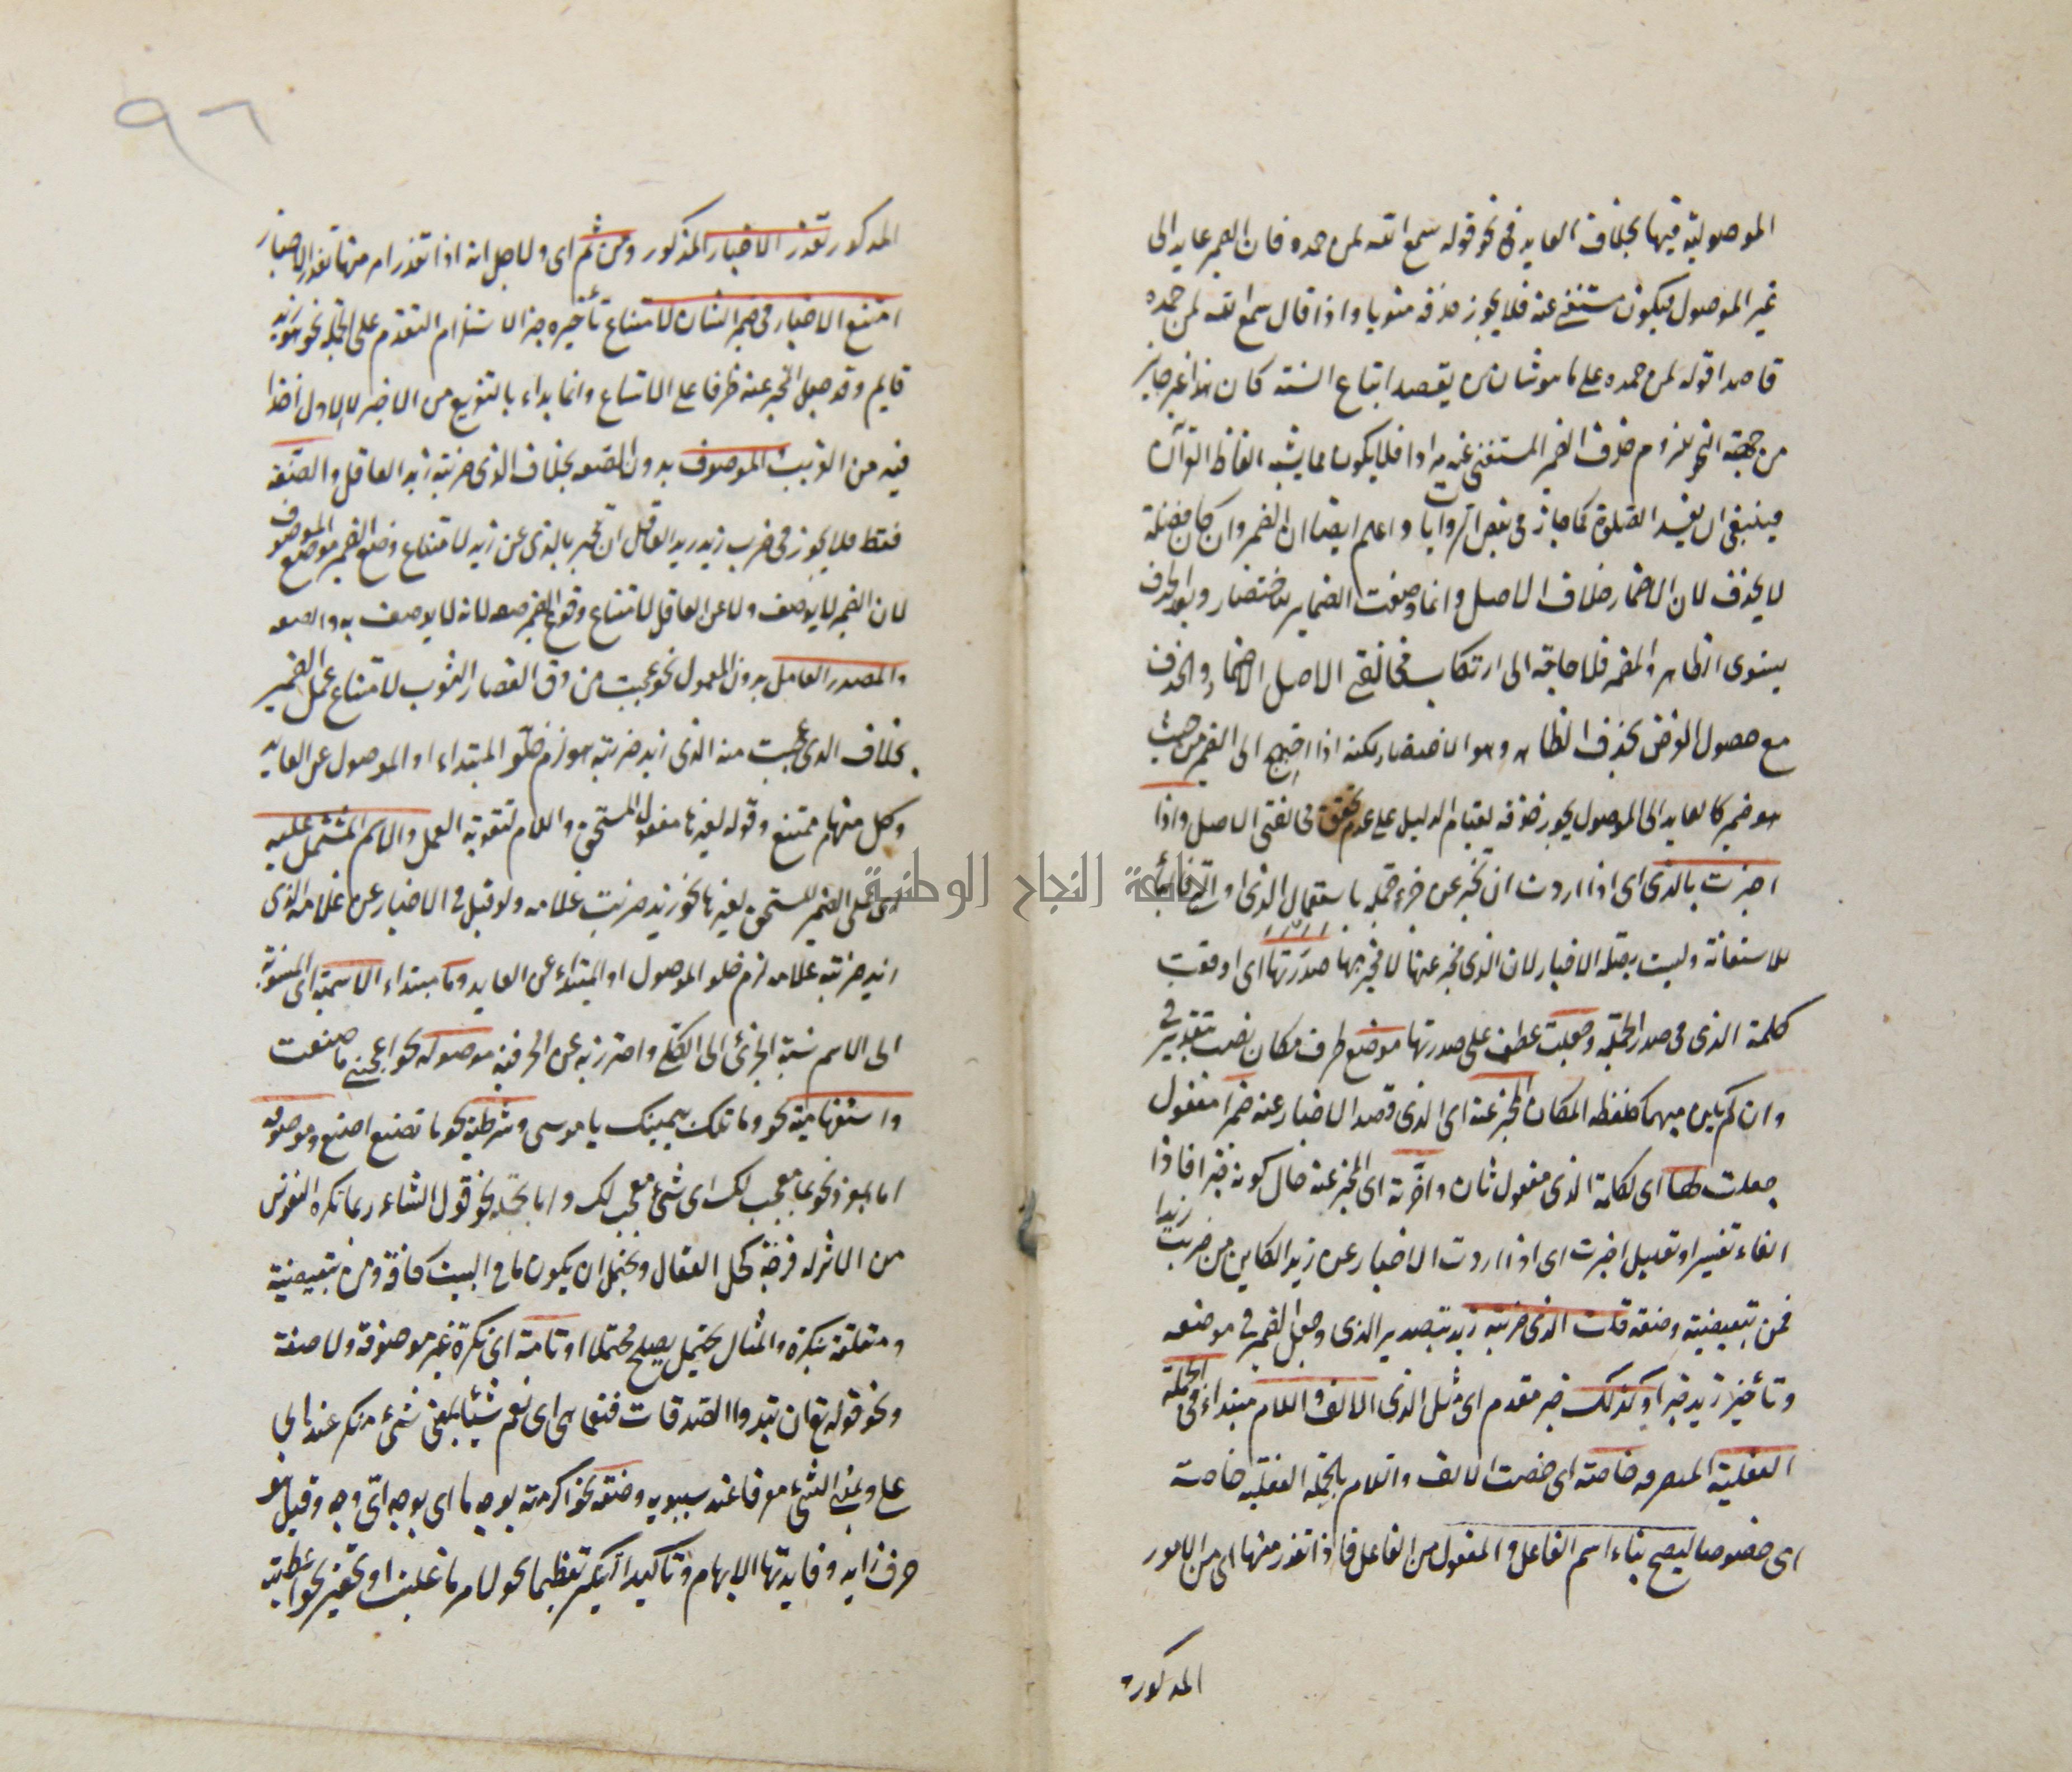 الموصولية فيها بخلاف العايد في نحو قوله سمع الله لمن حمده فان الضمير عايد الى
غير الموصول فيكون مستغنى عنه فلا يجوز حذفه منويا واذا قال سمع الله لمن حمده
قاصدا قوله لمن حمده على ما هو شان من يقصد اتباع السنة كان هذا غير جايز
من جهة النحو للزوم حذف الضمير المستغنى عنه مرادا فلا يكون مما يشبه الفاظ القرآن
فينبغي ان يفسد الصلوة كما جاز في بعض الروايات واعلم ايضا ان الضمير وان كان فضلة
لا يحذف لان الاضمار خلاف الاصل وانما وضعت الضماير للاختصار وبالحذف
يستوى الظاهر والمضمر فلا حاجة الى ارتكاب مخالفتى الاصل الاضمار والحذف
مع حصول الغرض بحذف الظاهر وهو الاختصار لكنه اذا احتيج الى الضمير من حيث
هو ضمير كالعايد الى الموصول يجوز حذفه لقيام الدليل على عدم تحقق مخالفتى الاصل واذا
اخبرت بالذى اى اذا اردت ان تخبر عن جزء جملة باستعمال الذى او التى فالباء
للاستعانة وليست بصلة الاخبار لان الذى مخبر عنها لا مخبر بها صدرتها اى اوقعت
كلمة الذى في صدر الجملة وجعلت عطف على صدرتها موضع ظرف مكان نصب بتقدير في
وان لم يكن مبهما كلفظه المكان المخبر عنه اى الذى قصد الاخبار عنه ضميرا مفعول
جعلت لها اى لكلمة الذى مفعول ثان واخرته اى المخبر عنه حال كونه خبرا فاذا
الفاء تفسير او تعليل اخبرت اى اذا اردت الاخبار عن زيد الكاين من ضربت زيدا
فمن تبعيضية وصفة قلت الذى ضربته زيد بتصدير الذى وجعل الضمير في موضعه
وتأخير زيد خبرا وكذلك خبر مقدم اى مثل الذى الالف واللام مبتداء في الجملة
الفعلية المتصرفة خاصة اى خصت الالف واللام بالجملة الفعلية خاصة
اى خصوصا ليصح بناء اسم الفاعل والمفعول من الفاعل فاذا تعذر منها اى من الامور
المذكورة
٩٦
المذكور تعذر الاخبار المذكور ومن ثم اى ولاجل انه اذا تعذر امر منها تعذر الاخبار
امتنع الاخبار في ضمير الشان لامتناع تأخيره خبرا لاستلزام التقدم على الجملة نحو هو زيد
قايم وقد جعل المخبر عنه ظرفا على الاتساع وانما بداء بالتفريع من الاخير لا الاول اخذا
فيه من القريب الموصوف بدون الصفة بخلاف الذى ضربته زيد العاقل والصفة
فقط فلا يجوز في ضرب زيد العاقل ان تخبر بالذى عن زيد لامتناع وضع الضمير موضع الموصوف
لان الضمير لا يوصف ولا عن العاقل لامتناع وقوع الضمير صفة لانه لا يوصف به والصفة
والمصدر العامل بدون المعمول نحو عجبت من دق القصار الثوب لامتناع عمل الضمير
بخلاف الذى عجبت منه الذى زيد ضربته هو لزم خلو المبتداء او الموصول عن العايد
وكل منهما ممتنع وقوله لغيرها مفعول المستحق واللام لتقوية العمل والاسم المشتمل عليه
اى على الضمير المستحق لغيرها نحو زيد ضربت غلامه ولو قيل في الاخبار عن غلامه الذى
زيد ضربته غلامه لزم خلو الموصول او المبتداء عن العايد وما مبتداء الاسمية اى المنسوبة
الى الاسم نسبة الجزئى الى الكلى واحترز به عن الحرفية موصولة نحو اعجبنى ما صنعت
واستفهامية نحو وما تلك بيمينك يا موسى وشرطية نحو ما تصنع اصنع وموصوفة
اما بمفرد نحو بما معجب لك اى شئ معجب لك واما بجملة نحو قول الشاعر ربما تكره النفوس
من الامر له فرجة كحل العقال ويحتمل ان يكون ما في البيت كافة ومن تبعيضية
ومتعلقة بتكره والمثال يحتمل يصلح محتملا او تامة اى نكرة غير موصوفة ولا صفة
ونحو قوله تع ان تبدوا الصدقات فنعما هى اى نعم شيئا بمعنى شئ منكر عند ابى
على وبمعنى الشئ معرفا عند سيبويه وصفة نحو اكرمته بوجه ما اى بوجه اى وجه وقيل هو
حرف زايد وفايدتها الابهام وتاكيدا لتنكير تعظيما نحو لامر ما غلبت او تحقير نحو اعطيت
جامعة النجاح الوطنية